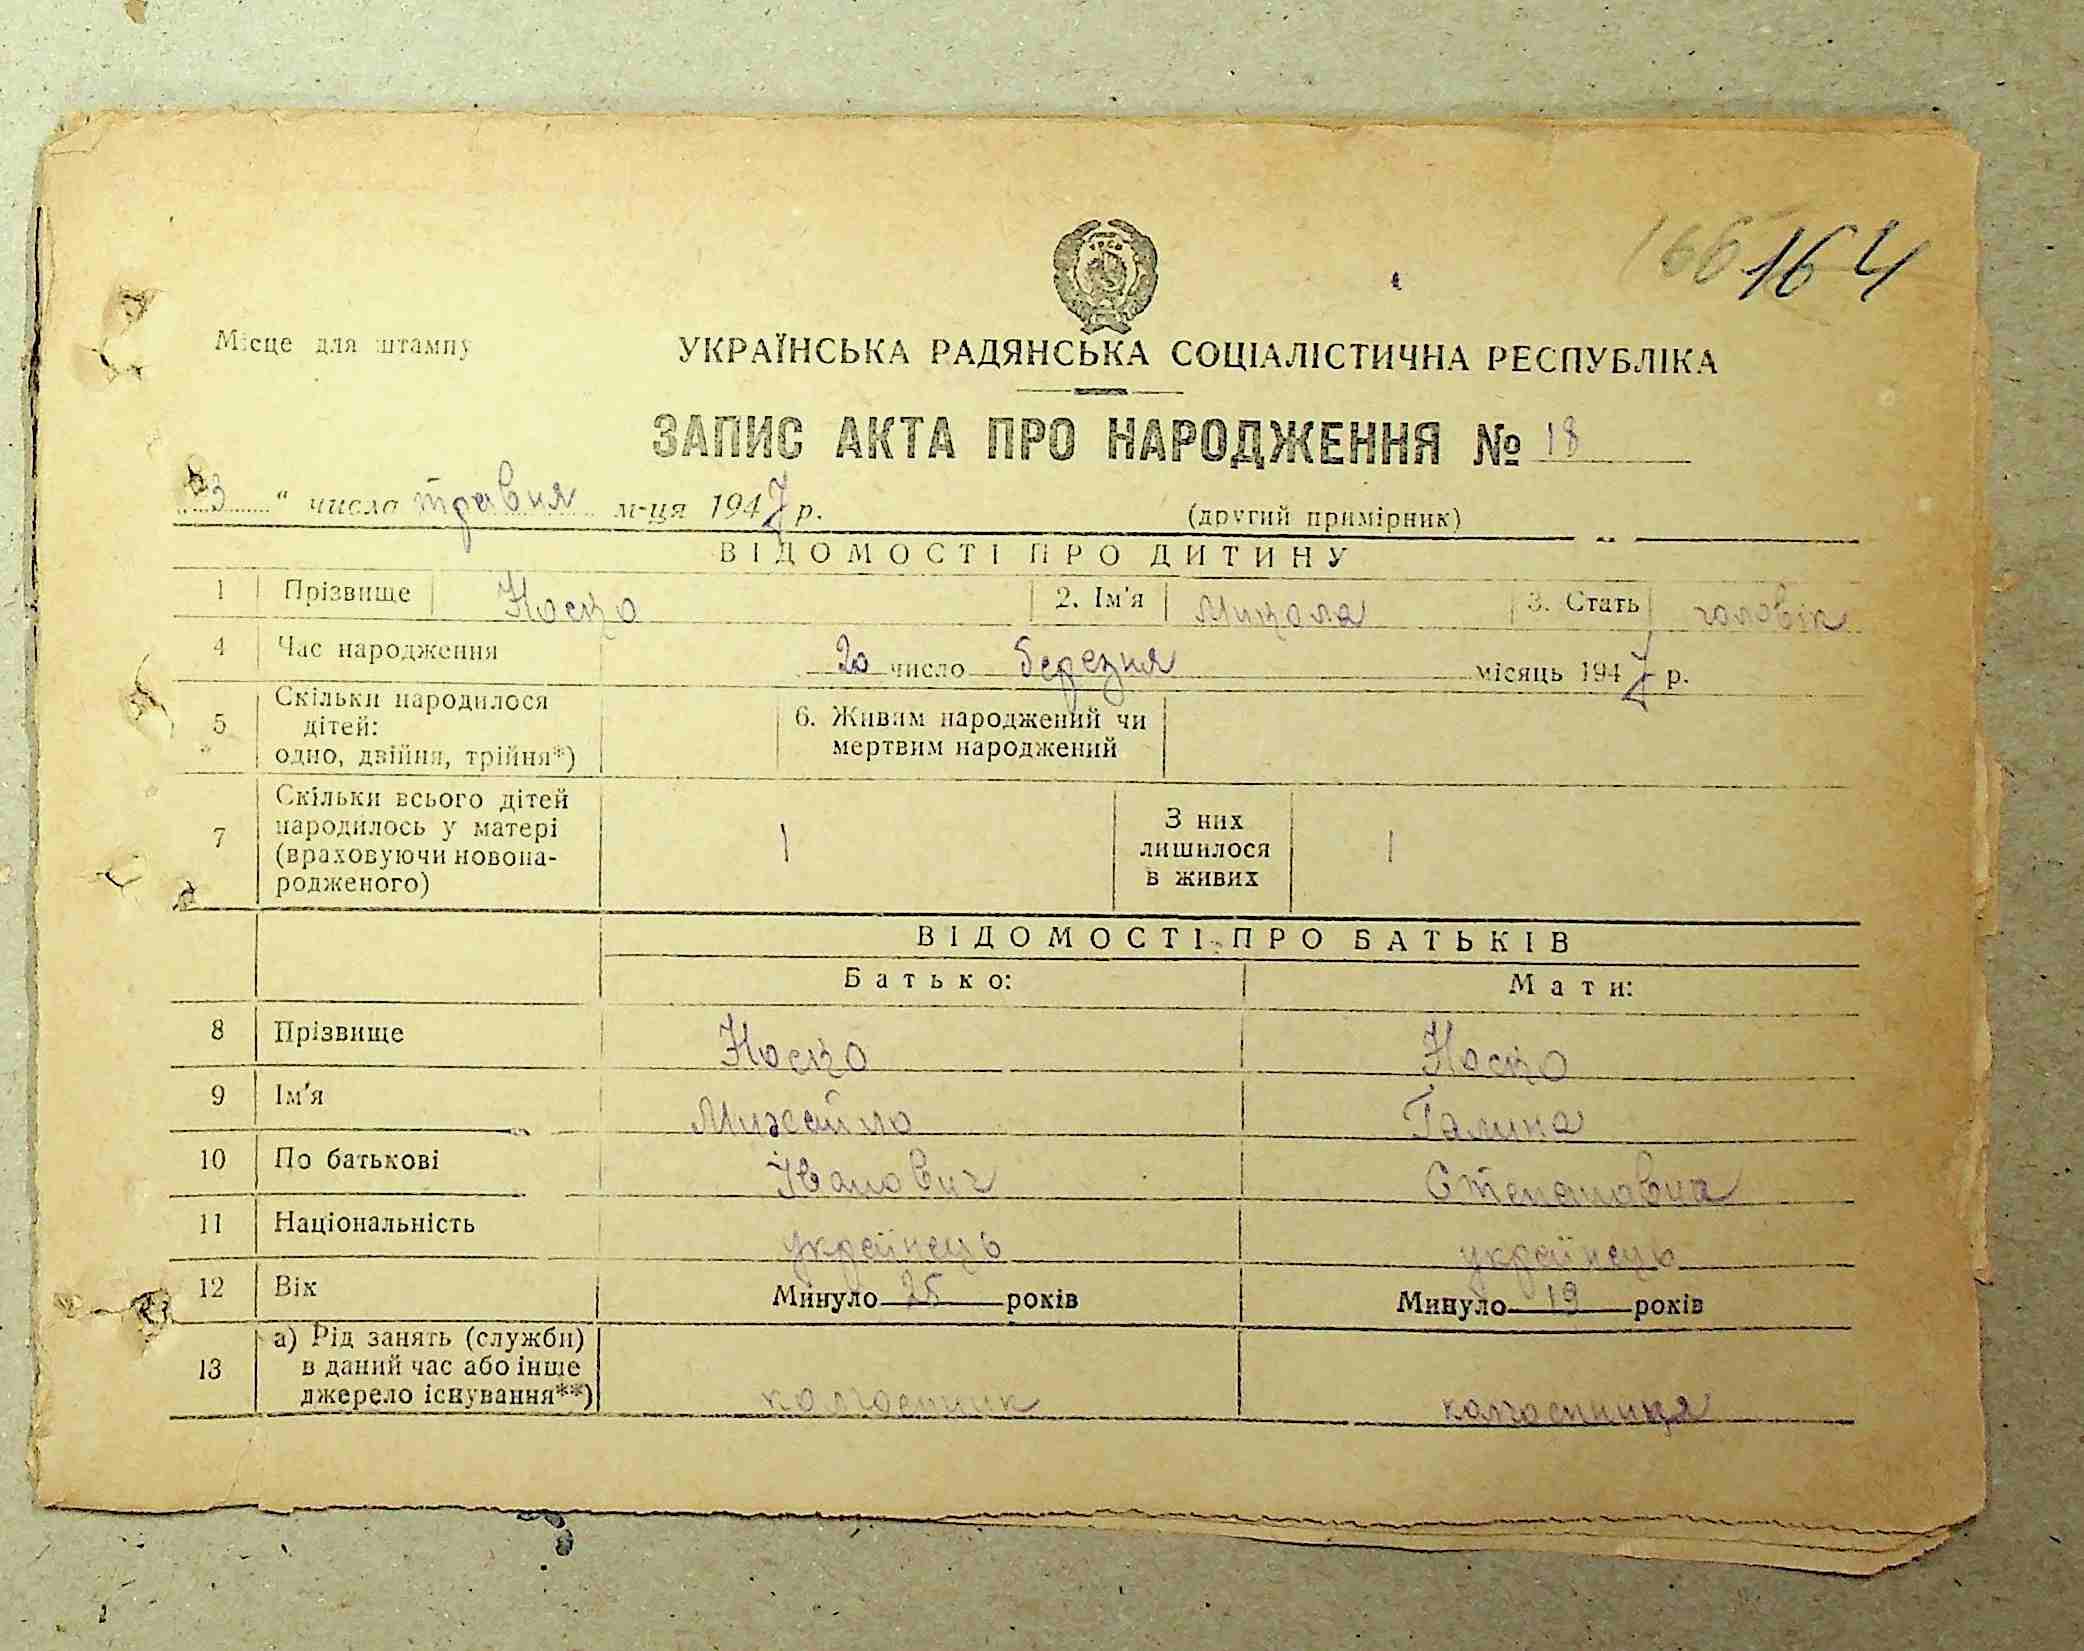 166 164
УРСР
Місце для штампу
УКРАЇНСЬКА РАДЯНСЬКА СОЦІАЛІСТИЧНА РЕСПУБЛІКА
ЗАПИС АКТА ПРО НАРОДЖЕННЯ № 18
"3" числа травня м-ця 1947 р.
(другий примірник)
ВІДОМОСТІ ПРО ДИТИНУ
1 Прізвище Носко 2. Ім'я Микола 3. Стать чоловік
4 Час народження 20 число березня місяць 1947 р.
5 Скільки народилося дітей: одно, двійня, трійня*) 6. Живим народжений чи мертвим народжений
7 Скільки всього дітей народилось у матері (враховуючи новона-родженого) 1 З них лишилося в живих 1
ВІДОМОСТІ ПРО БАТЬКІВ
Батько: Мати:
8 Прізвище Носко Носко
9 Ім'я Михайло Галина
10 По батькові Іванович Степановна
11 Національність українець українець
12 Вік Минуло 25 років Минуло 19 років
13 а) Рід занять (служби) в даний час або інше джерело існування**) колгоспник колгоспниця